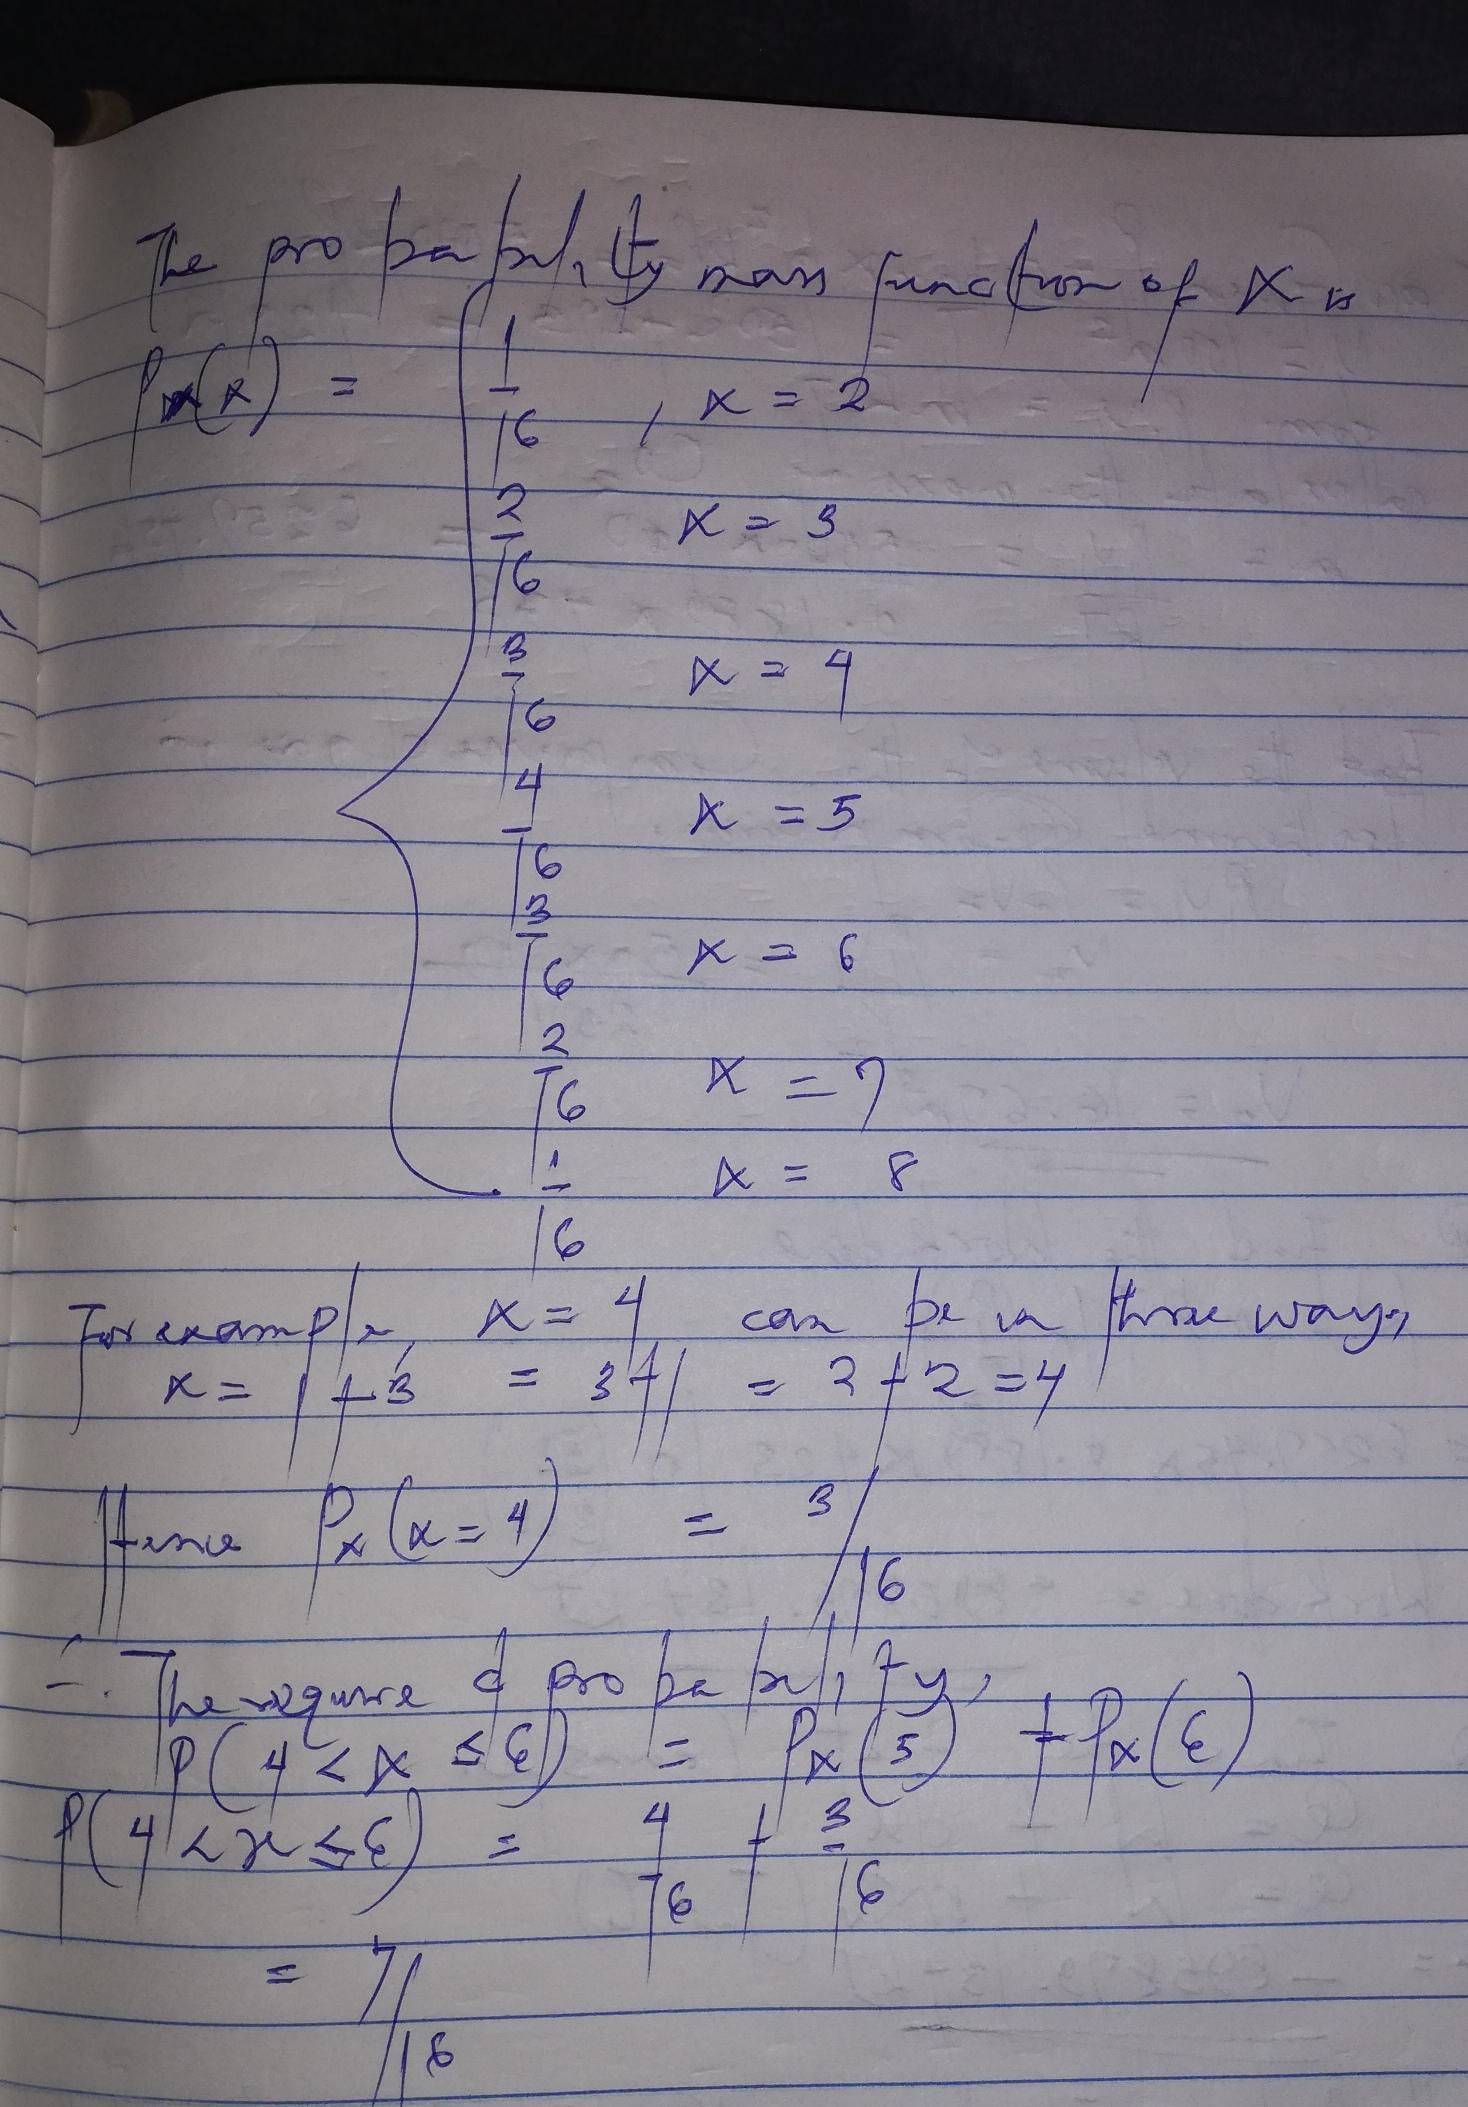 The probability mass function of X is
Px(x) = 1/16 , x = 2
2/16 x = 3
3/16 x = 4
4/16 x = 5
3/16 x = 6
2/16 x = 7
1/16 x = 8
For example, x = 4 can be in three ways,
x = 1+3 = 3+1 = 2+2 = 4
Hence Px(x=4) = 3/16
∴ The required probability,
P(4 < x ≤ 6) = Px(5) + Px(6)
P(4 < x ≤ 6) = 4/16 + 3/16
= 7/16